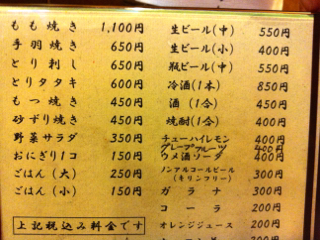 もも焼き 1,100円
手羽焼き 650円
とり刺し 650円
とりタタキ 600円
もつ焼き 450円
砂ずり焼き 450円
野菜サラダ 350円
おにぎり1コ 150円
ごはん(大) 250円
ごはん(小) 150円
上記税込み料金です
生ビール(中) 550円
生ビール(小) 400円
瓶ビール(中) 550円
冷酒(1本) 850円
酒(1合) 450円
焼酎(1合) 400円
チューハイレモン 400円
グレープフルーツ 400円
ウメ酒ソーダ 400円
ノンアルコールビール
(キリンフリー) 300円
ガラナ 300円
コーラ 200円
オレンジジュース 200円